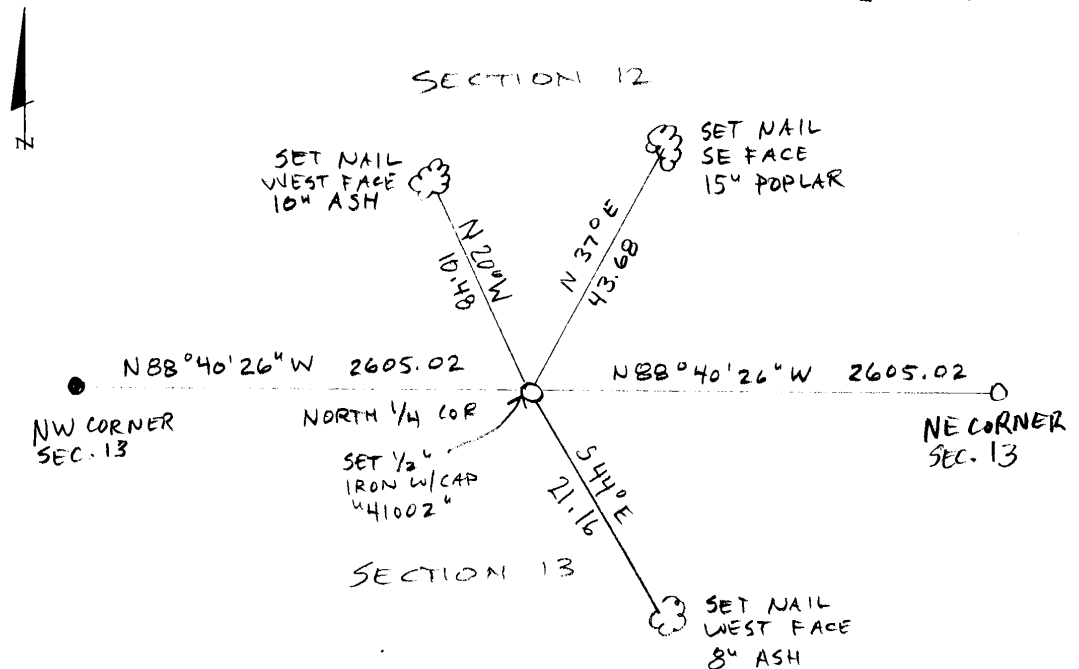 N
SECTION 12
SET NAIL
WEST FACE
10" ASH
SET NAIL
SE FACE
15" POPLAR
N 20°W
10.48
N 37°E
43.68
N88°40'26"W 2605.02
N88°40'26"W 2605.02
NW CORNER
SEC. 13
NORTH 1/4 COR
SET 1/2"
IRON W/CAP
"41002"
NE CORNER
SEC. 13
S44°E
21.16
SECTION 13
SET NAIL
WEST FACE
8" ASH